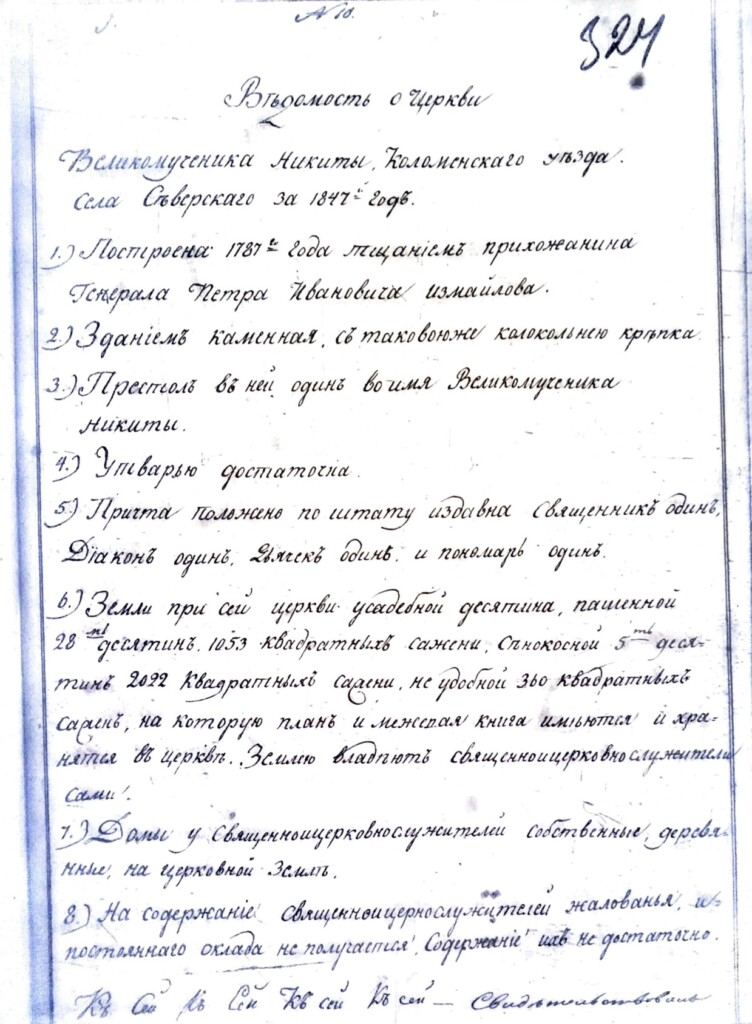 № 10.
324
Вѣдомость о Церкви
Великомученика Никиты, Коломенскаго уѣзда.
Села Сѣверскаго за 1847й годъ.
1.) Построена 1787го года тщаніемъ прихожанина
Генерала Петра Ивановича Измайлова.
2.) Зданіемъ каменная, съ таковоюже колокольнею крѣпка
3.) Престолъ въ ней одинъ во имя Великомученика
Никиты.
4.) Утварью достаточна.
5.) Причта положено по штату издавна Священникъ одинъ,
Діаконъ одинъ, Дьячекъ одинъ, и пономарь одинъ.
6.) Земли при сей церкви усадебной десятина, пашенной
28мь десятинъ. 1053 квадратныхъ сажени, Сѣнокосной 5ть деся-
тинъ 2022 Квадратныхъ сажени, не удобной 360 квадратныхъ
саженъ, на которую планъ и межевая книга имѣются и хра-
нятся въ церквѣ. Землею владѣютъ священноицерковнослужители
сами.
7.) Домы у Священноицерковнослужителей собственные, деревя-
нные, на церковной Землѣ.
8.) На содержаніе священноицернослужителей жалованья, и
постояннаго оклада не получается, Содержаніе не достаточно.
Къ Сей Къ Сей Къ сей Къ сей — Свидѣтельствовалъ